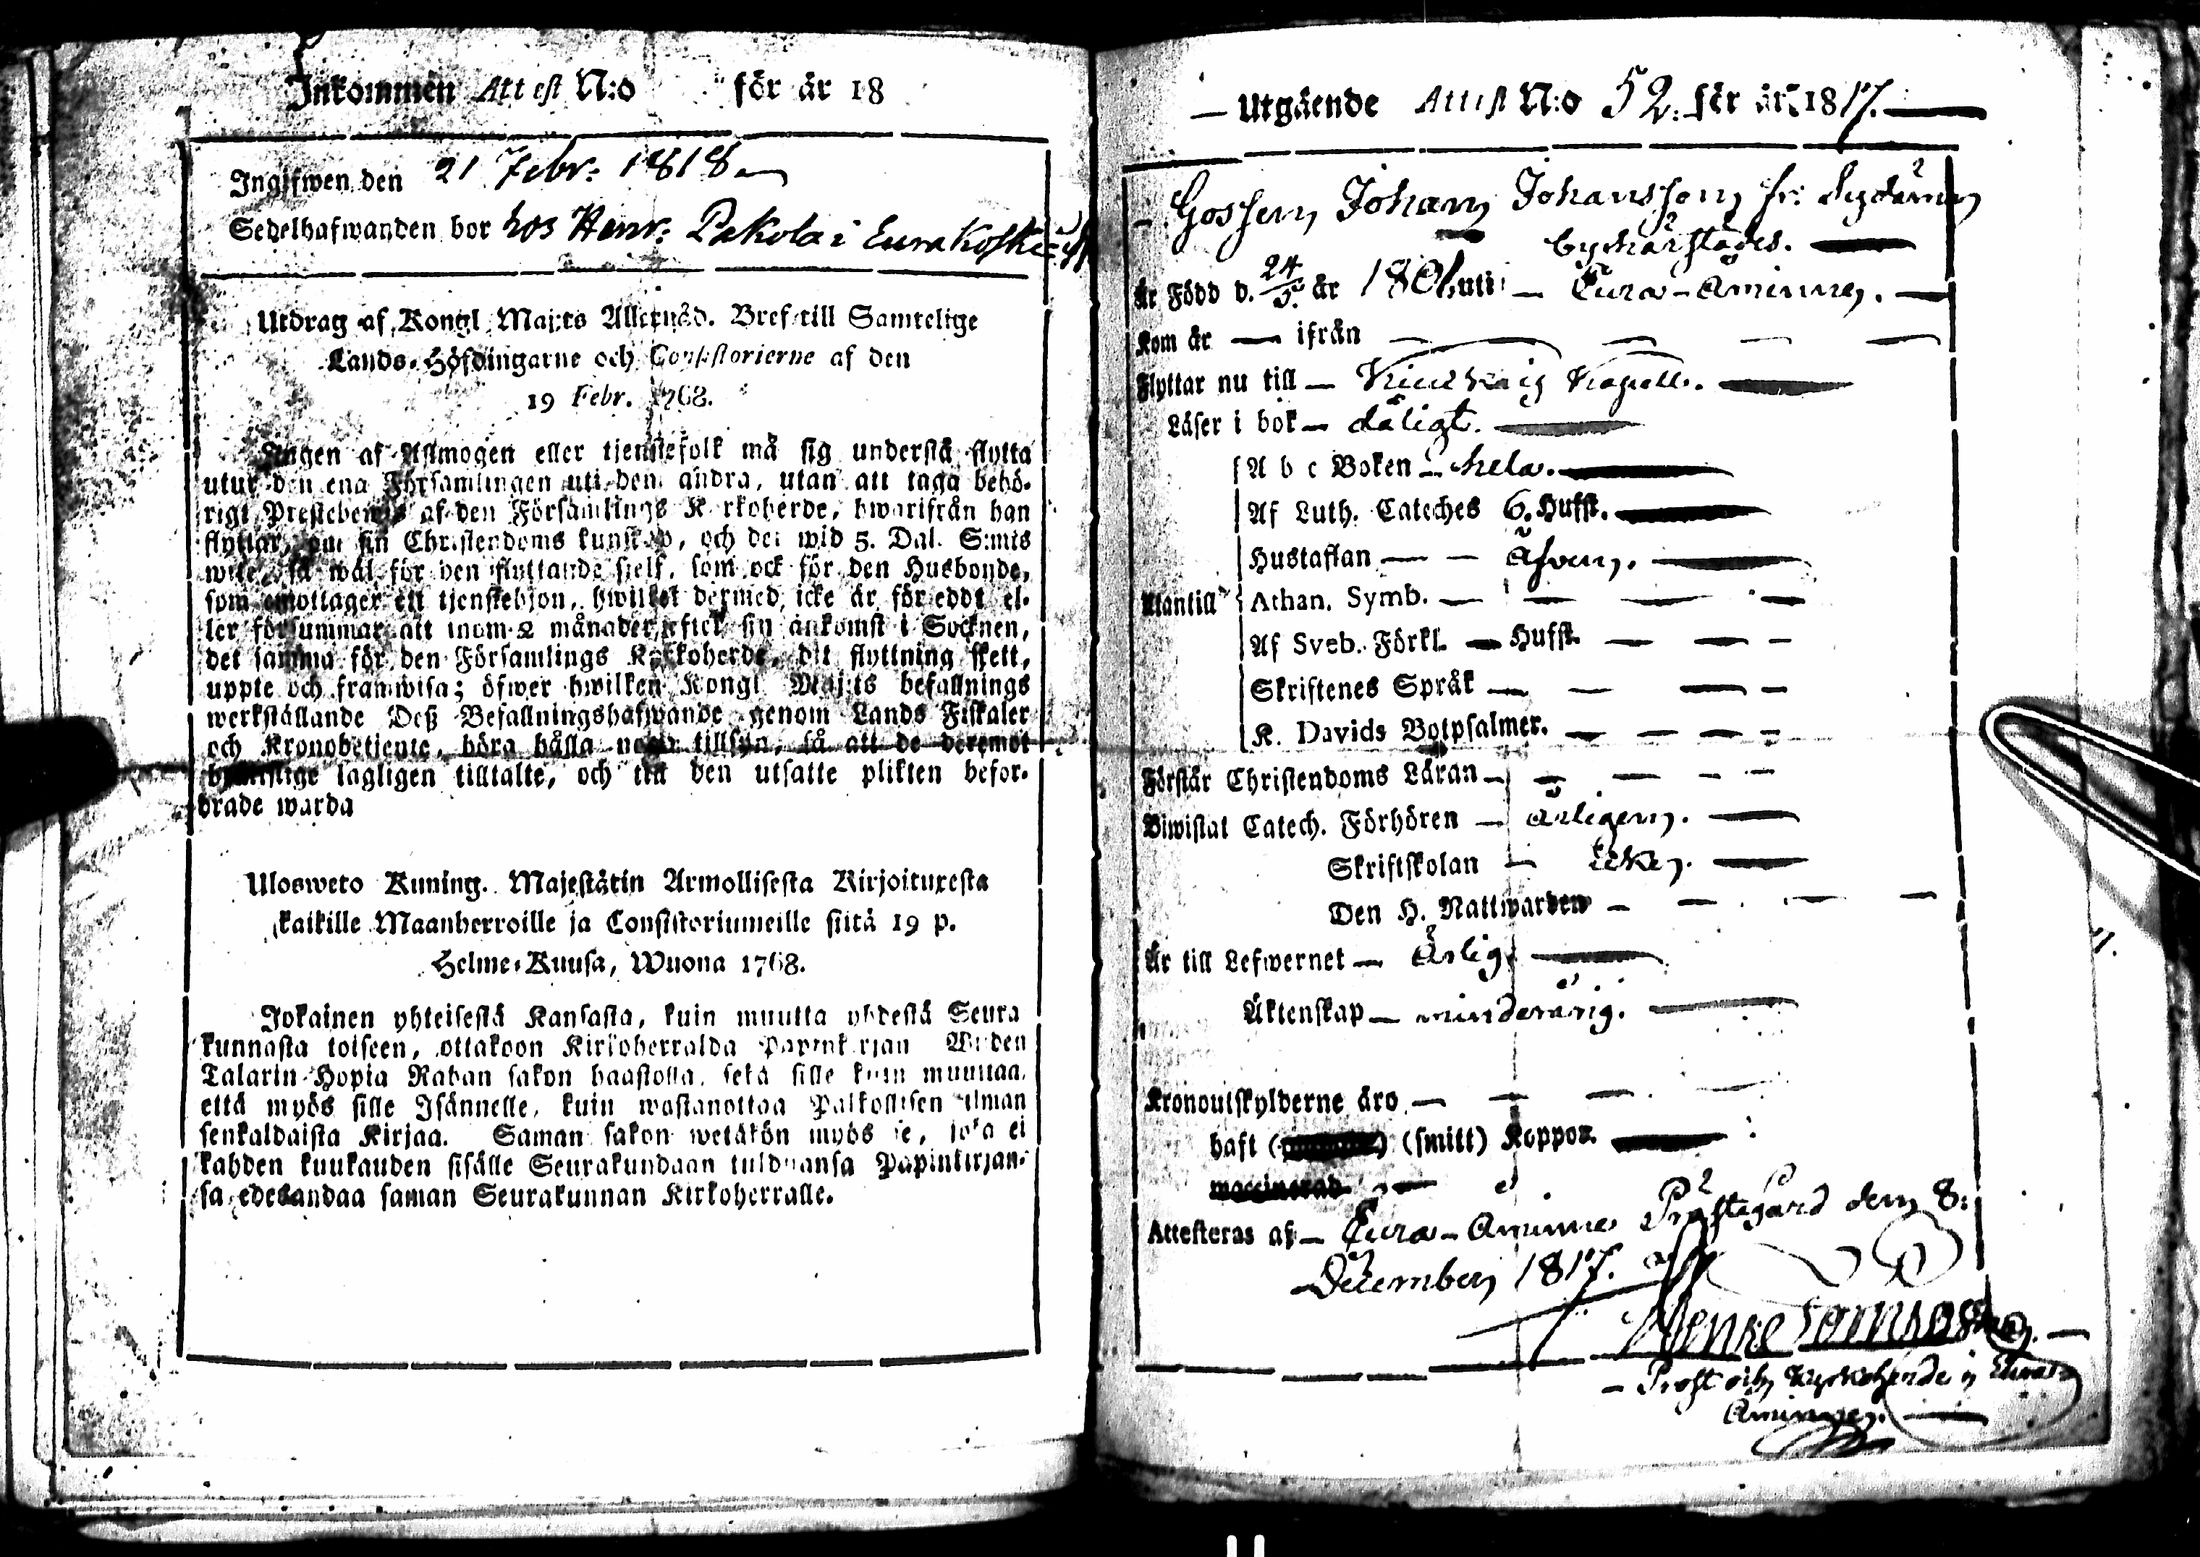 Inkommen Attest N:o för år 18
Ingifwen den 21 Febr: 1818
Sedelhafwanden bor hos Henr: Pakola i Eurakoski
Utdrag af Kongl. Maj:ts Allernåd. Bref till Samtelige
Lands-Höfdingarne och Consistorierne af den
19 Febr. 1768.
Ingen af Allmogen eller tjenstefolk må sig understå flytta
utur den ena Församlingen uti den andra, utan att taga behö-
rigt Prestebewis af den Församlings Kyrkoherde, hwarifrån han
flyttar, om sin Christendoms kunskap, och det wid 5. Dal. S:mts
wite, så wäl för den flyttande sjelf, som ock för den Husbonde,
som emottager ett tjenstehjon, hwilket dermed icke är försedt el-
ler försummar att inom 2 månader efter sin ankomst i Socknen,
det samma för den Församlings Kyrkoherde, dit flyttning skett,
uppte och framwisa; öfwer hwilken Kongl. Maj:ts befallnings
werkställande Deß Befallningshafwande genom Lands Fiskaler
och Kronobetjente, böra hålla noga tillsyn, så att de deremot
brottslige lagligen tilltalte, och till den utsatte plikten befor-
drade warda
Ulosweto Kuning. Majestätin Armollisesta Kirjoituxesta
kaikille Maanherroille ja Consistoriumeille siitä 19 p.
Helme-Kuusa, Wuona 1768.
Jokainen yhteisestä Kansasta, kuin muutta yhdestä Seura
kunnasta toiseen, ottakoon Kirkoherralda Papinkirjan Wiiden
Talarin Hopia Rahan sakon haastolla, sekä sille kuin muuttaa,
että myös sille Isännelle, kuin wastanottaa Palkollisen ilman
senkaldaista Kirjaa. Saman sakon wetäkön myös se, joka ei
kahden kuukauden sisälle Seurakundaan tulduansa Papinkirjan-
sa edesandaa saman Seurakunnan Kirkoherralle.
Utgående Attest N:o 52. för år 1817.
Gossen Johan Johansson fr:
by härstädes.
Är Född d. 24/5. år 1801. uti Eura-Åminne.
Kom år — ifrån
Flyttar nu till — Kapell.
Läser i bok — dåligt.
A b c Boken — hela.
Af Luth. Cateches 6. Hufst.
Hustaflan — — äfven.
Utantill Athan. Symb. —
Af Sveb. Förkl. — Hufst.
Skriftenes Språk —
K. Davids Botpsalmer.
Förstår Christendoms Läran —
Biwistat Catech. Förhören — årligen.
Skriftskolan — icke.
Den H. Nattwarden —
Är till Lefwernet — Ärlig.
Äktenskap — minderårig.
Kronoutskylderne äro —
haft (smitt) Koppor.
Attesteras af — Eura-Åminne Prästegård den 8:
December 1817.
Prost och Kyrkoherde i Eura-
Åminne.